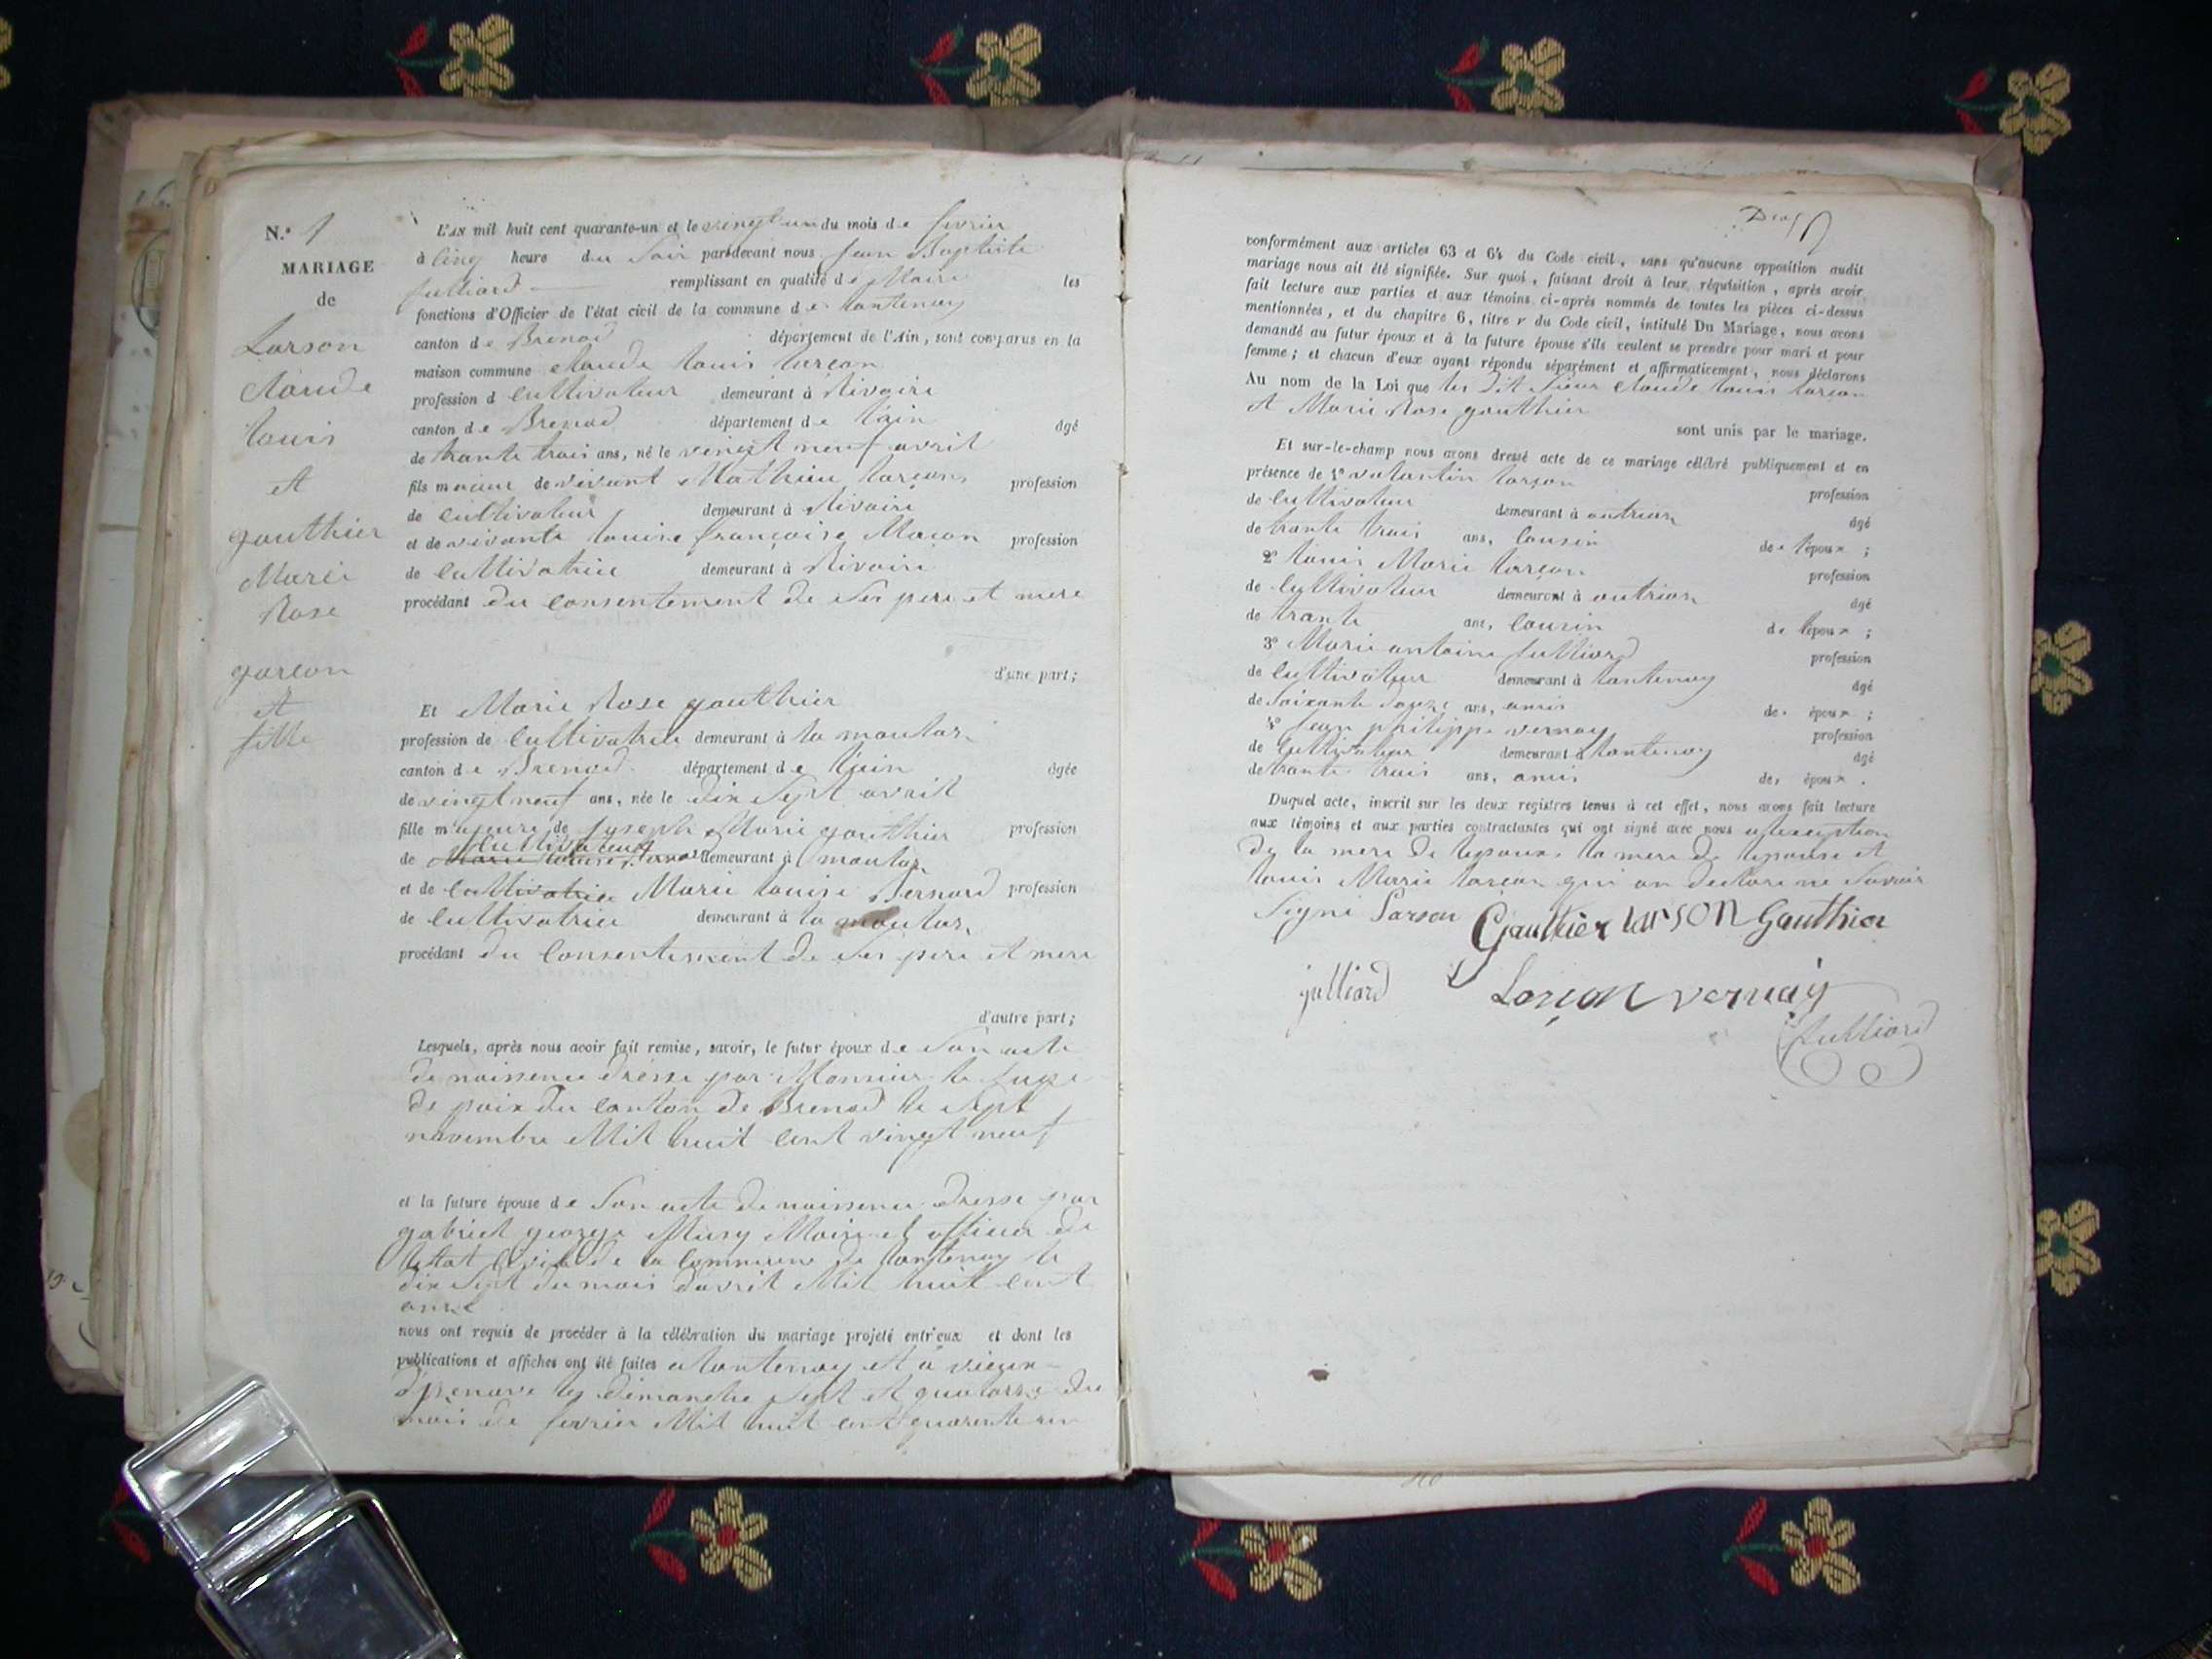 N.° 1
MARIAGE
de
Larson
Claude
Louis
et
gauthier
Marie
Rose
garcon
et
fille
L'AN mil huit cent quarante-un et le vingt un du mois de fevrier
à cinq heure du Soir pardevant nous Jean Baptiste
Julliard remplissant en qualité de Maire les
fonctions d'Officier de l'état civil de la commune de Lantenay
canton de Brenod département de l'Ain, sont comparus en la
maison commune Claude Louis Larçon
profession d cultivateur demeurant à Rivoire
canton de Brenod département de lain âgé
de trante trois ans, né le vingt neuf avril
fils majeur de vivant Mathieu Larçon profession
de cultivateur demeurant à Rivoire
et de vivante Louise françoise Maçon profession
de cultivatrice demeurant à Rivoire
procédant du consentement de Ses pere et mere
d'une part;
Et Marie Rose gauthier
profession de cultivatrice demeurant à la moutar
canton de Brenod département de lain âgée
de vingt neuf ans, née le dix Sept avril
fille majeure de Joseph Marie gauthier profession
cultivateur
de demeurant à moutar
et de cultivatrice Marie Louise Bernard profession
de cultivatrice demeurant à la moutar
procédant du consentement de Ses pere et mere
d'autre part;
Lesquels, après nous avoir fait remise, savoir, le futur époux de Son acte
de naissence dressé par Monsieur le Juge
de paix du canton de Brenod le Sept
novembre Mil huit cent vingt neuf
et la future épouse de Son acte de naissence dressé par
gabriel george Musy Maire et officier de
letat Civil de la commune de Lantenay le
dix Sept du mois davril Mil huit cent
onze
nous ont requis de procéder à la célébration du mariage projeté entr'eux et dont les
publications et affiches ont été faites a Lantenay et a vieux
dizenave les dimanche Sept et quatorze du
mois de fevrier Mil huit cent quarente un
conformément aux articles 63 et 64 du Code civil, sans qu'aucune opposition audit
mariage nous ait été signifiée. Sur quoi, faisant droit à leur réquisition, après avoir
fait lecture aux parties et aux témoins ci-après nommés de toutes les pièces ci-dessus
mentionnées, et du chapitre 6, titre v du Code civil, intitulé Du Mariage, nous avons
demandé au futur époux et à la future épouse s'ils veulent se prendre pour mari et pour
femme; et chacun d'eux ayant répondu séparément et affirmativement, nous déclarons
Au nom de la Loi que les Dit Sieur Claude Louis Larçon
et Marie Rose gauthier
sont unis par le mariage.
Et sur-le-champ nous avons dressé acte de ce mariage célébré publiquement et en
présence de 1° valantin Larçon profession
de cultivateur demeurant à outriar âgé
de trante trois ans, cousin de lépoux ;
2° Louis Marie Larçon profession
de cultivateur demeurant à outriar âgé
de trante ans, cousin de lépoux ;
3° Marie antoine Julliard profession
de cultivateur demeurant à Lantenay âgé
de Soixante ans, amis des époux ;
4° Jean philippe vernay profession
de cultivateur demeurant à Lantenay âgé
de trante trois ans, amis des époux .
Duquel acte, inscrit sur les deux registres tenus à cet effet, nous avons fait lecture
aux témoins et aux parties contractantes qui ont signé avec nous alexeption
de la mere de lepoux, la mere de lepouse et
Louis Marie Larçon qui on declare ne Savoir
Signé Larson Gauthier larSON Gauthier
julliard Larçon vernay
Julliard